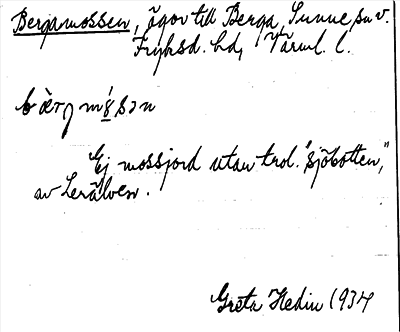 Bergamossen, ägor till Berga, Sunne sn v.
Fryksd. hd, Värml. l.
bàrgmósən
Ej mossjord utan trol. "sjöbotten,"
av Lerälven.
Greta Hedin 1934